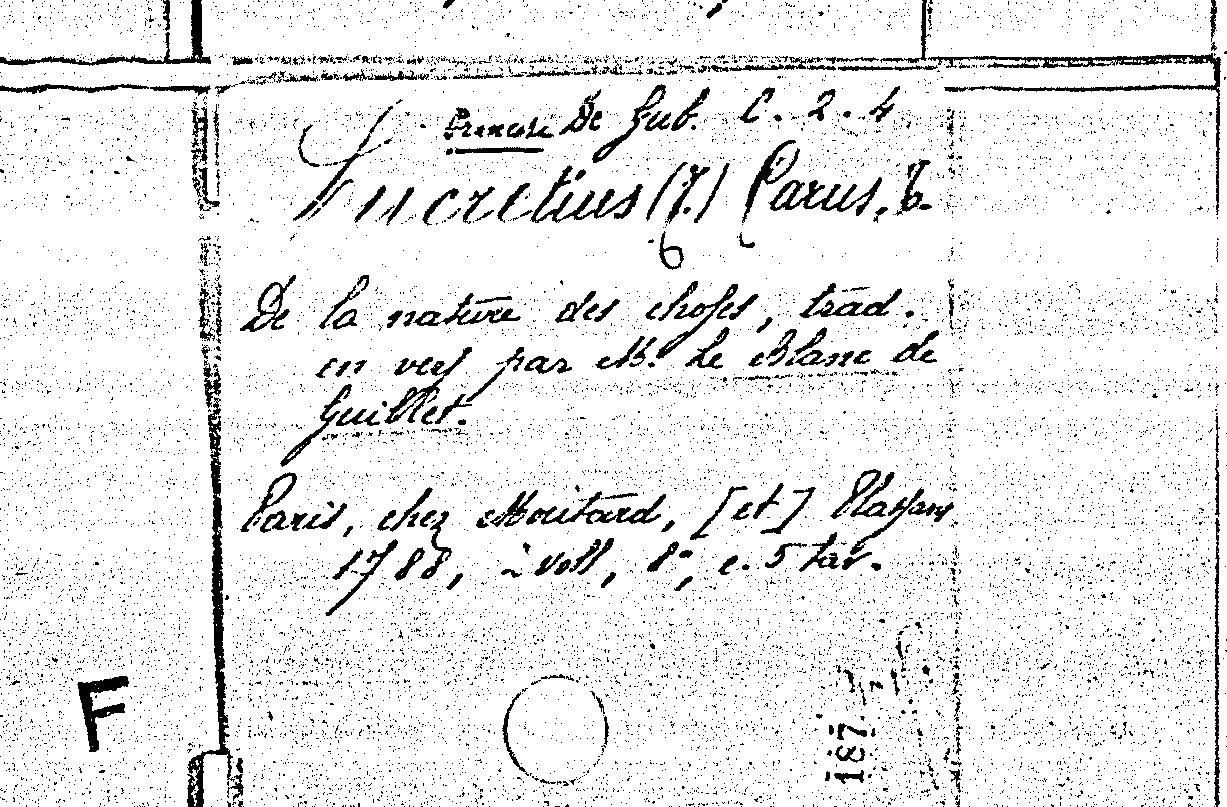 De Gub. C. 2. 4
Lucretius (T.) Carus, T.
De la nature des choses, trad.
en vers par M. Le Blanc de
Guillet.
Paris, chez Moutard, [et] Plassans
1788, 2 voll, 8°, c. 5 tav.
F
187